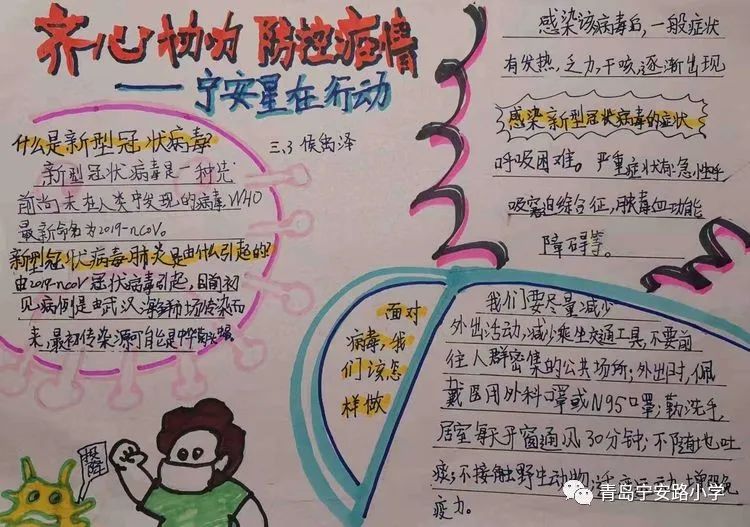 齐心协力 防控疫情
——宁安星在行动
三.3 侯
什么是新型冠状病毒?
新型冠状病毒是一种
前尚未在人类中发现的病毒WHO
最新命名为2019-ncoV。
新型冠状病毒肺炎是由什么引起的?
由2019-ncoV冠状病毒引起,目前初
见病例是由武汉海鲜市场传染而
来,最初传染源可能是
感染该病毒后,一般症状
有发热,乏力,干咳,逐渐出现
感染新型冠状病毒的症状
呼吸困难。严重症状有:急性呼
吸窘迫综合征,脓毒血功能
障碍等。
面对
病毒,我
们该怎
样做
我们要尽量减少
外出活动,减少乘坐交通工具,不要前
往人群密集的公共场所;外出时,佩
戴医用外科口罩或N95口罩;勤洗手,
居室每天开窗通风30分钟;不随地吐
痰;不接触野生动物;适 运动,增强免
疫力。
青岛宁安路小学